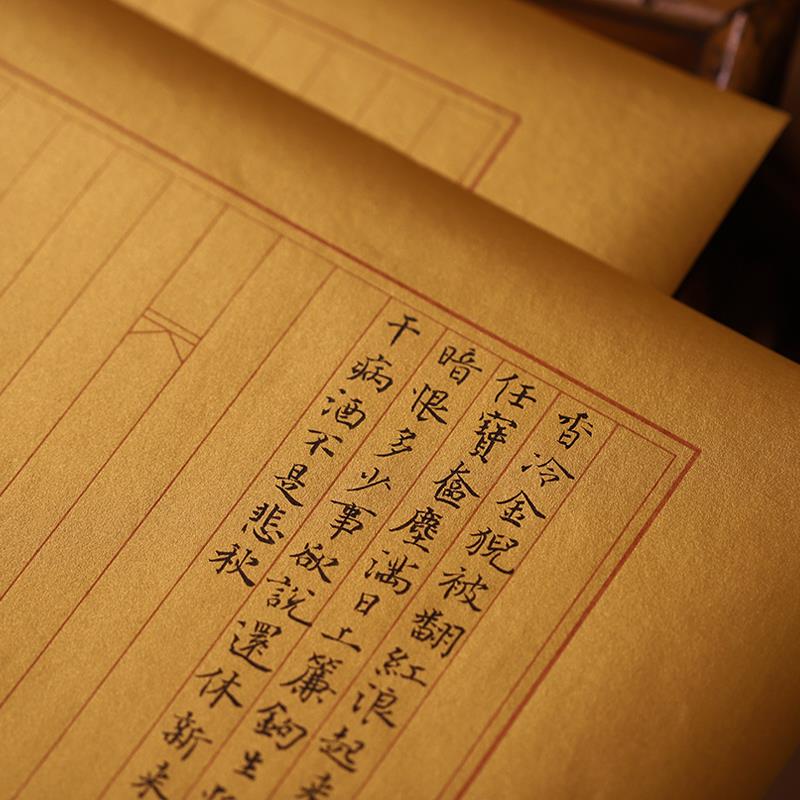 香冷金猊被翻紅浪起来
任寶奩塵滿日上簾鉤生
暗恨多少事欲說還休新来
干病酒不是悲秋